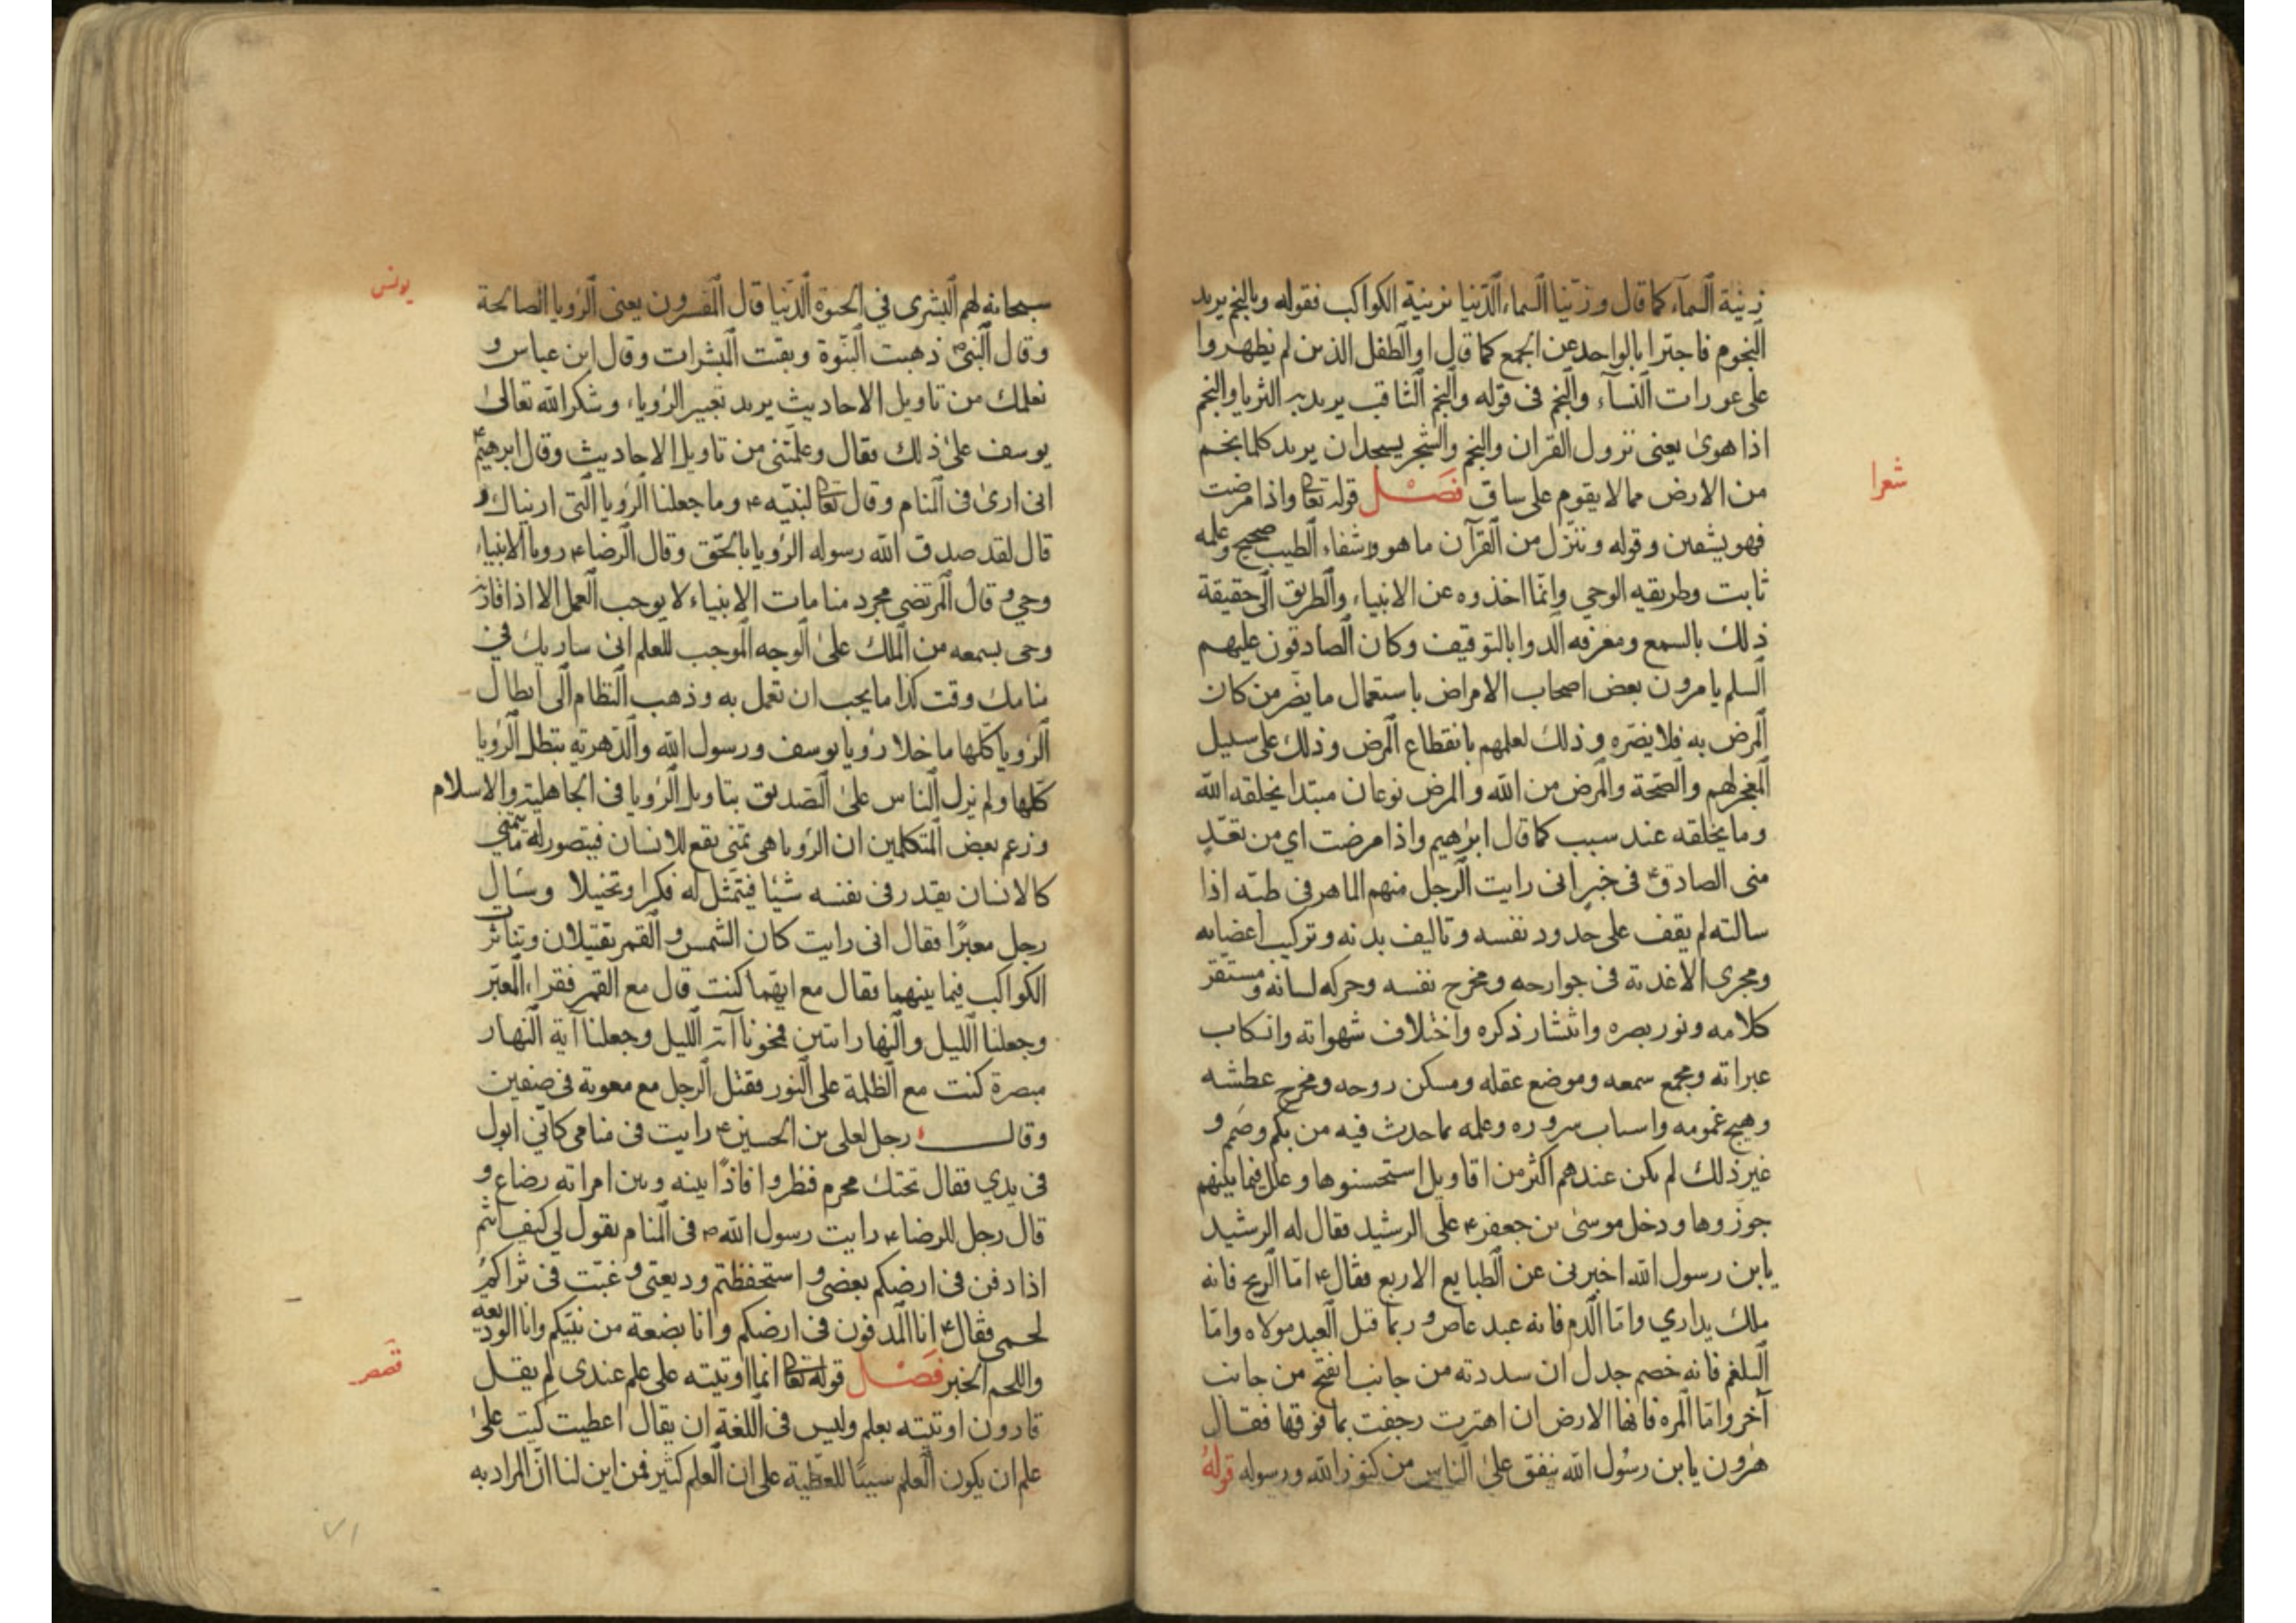 زينة السماء كما قال وزينا السماء الدنيا بزينة الكواكب فقوله وبالنجم يريد
النجوم فاجتزا بالواحد عن الجمع كما قال او الطفل الذين لم يظهروا
على عورات النسآء والنجم فى قوله والنجم الثاقب يريد به الثريا والنجم
اذا هوى يعنى نزول القران والنجم والشجر يسجدان يريد كلما نجم
من الارض مما لا يقوم على ساق فصل قوله تعالى واذا مرضت
شعرا
فهو يشفين وقوله وننزل من القرآن ما هو شفاء الطب صحيح وعلمه
ثابت وطريقه الوحي وانما اخذوه عن الانبياء والطريق الى حقيقة
ذلك بالسمع ومعرفه الدوا بالتوقيف وكان الصادقون عليهم
السلم يامرون بعض اصحاب الامراض باستعمال ما يضر من كان
المرض به فلا يضره وذلك لعلمهم بانقطاع المرض وذلك على سبيل
المعجز لهم والصحة والمرض من الله والمرض نوعان مبتدا يخلقه الله
وما يخلقه عند سبب كما قال ابرهيم واذا مرضت اي من تعد
منى الصادق ع فى خبر انى رايت الرجل منهم الماهر فى طبه اذا
سالته لم يقف على حدود نفسه وتاليف بدنه وتركيب اعضايه
ومجرى الاغذية فى جوارحه ومخرج نفسه وحركه لسانه ومستقر
كلامه ونور بصره وانتشار ذكره واختلاف شهواته وانسكاب
عبراته ومجمع سمعه وموضع عقله ومسكن روحه ومخرج عطشه
وهيج غمومه واسباب سروره وعلمه بما حدث فيه من بكم وصمم و
غير ذلك لم يكن عندهم اكثر من اقاويل استحسنوها وعلل فيما بينهم
جوزوها ودخل موسى بن جعفر ع على الرشيد فقال له الرشيد
يابن رسول الله اخبرنى عن الطبايع الاربع فقال ع اما الريح فانه
ملك يداري واما الدم فانه عبد عاص وربما قتل العبد مولاه واما
البلغم فانه خصم جدل ان سددته من جانب انفتح من جانب
آخر واما المره فانها الارض ان اهتزت رجفت بما فوقها فقال
هرون يابن رسول الله تنفق على الناس من كنوز الله ورسوله قوله
سبحانه لهم البشرى في الحيوة الدنيا قال المفسرون يعنى الرؤيا الصالحة
يونس
وقال النبى ص ذهبت النبوة وبقيت المبشرات وقال ابن عباس و
نعلمك من تاويل الاحاديث يريد تعبير الرؤياء وشكر الله تعالى
يوسف على ذلك فقال وعلمتنى من تاويل الاحاديث وقال ابرهيم ع
انى ارى فى المنام وقال تعالى لنبيه ع وما جعلنا الرؤيا التى اريناك و
قال لقد صدق الله رسوله الرؤيا بالحق وقال الرضا ع رويا الانبياء
وحي وقال المرتضى مجرد منامات الانبياء لا يوجب العمل الا اذا قارنه
وحى يسمعه من الملك على الوجه الموجب للعلم انى ساريك في
منامك وقت كذا ما يجب ان تعمل به وذهب النظام الى ابطال
الرؤيا كلها ما خلا رؤيا يوسف ورسول الله والدهرية تبطل الرؤيا
كلها ولم يزل الناس على التصديق بتاويل الرؤيا فى الجاهلية والاسلام
وزعم بعض المتكلمين ان الرؤيا هى تمنى يقع للانسان فيتصور له ما يتمنى
كالانسان يقدر فى نفسه شيا فيتمثل له فكرا وتخيلا وسال
رجل معبرا فقال انى رايت كان الشمس والقمر يقتتلان وتناثرت
الكواكب فيما بينهما فقال مع ايهما كنت قال مع القمر فقراء المعبر
وجعلنا الليل والنهار ايتين فمحونا آية الليل وجعلنا آية النهار
مبصرة كنت مع الظلمة على النور فقتل الرجل مع معوية فى صفين
وقال رجل لعلى بن الحسين ع رايت فى منامى كانى ابول
فى يدي فقال تحتك محرم فنظروا فاذا بينه وبين امراته رضاع و
قال رجل للرضا ع رايت رسول الله ص فى المنام يقول لى كيف انتم
اذا دفن فى ارضكم بعضى واستحفظتم وديعتى وغيبت فى ثراكم
لحمى فقال ع انا المدفون فى ارضكم وانا بضعة من نبيكم وانا الوديعه
واللحم الخبر فصل قوله تعالى انما اوتيته على علم عندى لم يقل
قصص
قارون اوتيته بعلم وليس فى اللغة ان يقال اعطيت كيت على
علم ان يكون العلم سببا للعطية على ان العلم كثير فمن اين لنا ان المراد به
٧١